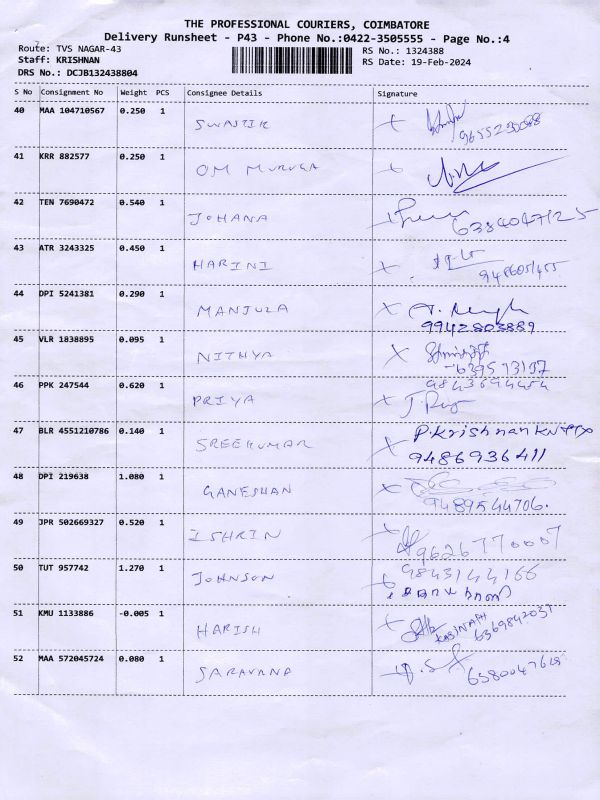 THE PROFESSIONAL COURIERS, COIMBATORE
Delivery Runsheet - P43 - Phone No.:0422-3505555 - Page No.:4
Route: TVS NAGAR-43
RS No.: 1324388
Staff: KRISHNAN
RS Date: 19-Feb-2024
DRS No.: DCJB132438804
S No Consignment No Weight PCS Consignee Details Signature
40 MAA 104710567 0.250 1 SWASTIK
9655230088
41 KRR 882577 0.250 1 OM MURUGA
42 TEN 7690472 0.540 1 JOHANA
6384047125
43 ATR 3243325 0.450 1 HARINI
44 DPI 5241381 0.290 1 MANJULA
9942803889
45 VLR 1838895 0.095 1 NITHYA
46 PPK 247544 0.620 1 PRIYA
9843694454
47 BLR 4551210786 0.140 1 SREEKUMAR P.Krishnan
9486936411
48 DPI 219638 1.080 1 GANESHAN
9489544706.
49 JPR 502669327 0.520 1 ISHRIN
9626770007
50 TUT 957742 1.270 1 JOHNSON
9843144166
51 KMU 1133886 -0.005 1 HARISH
KABINATH
6369842037
52 MAA 572045724 0.080 1 SARAVANA